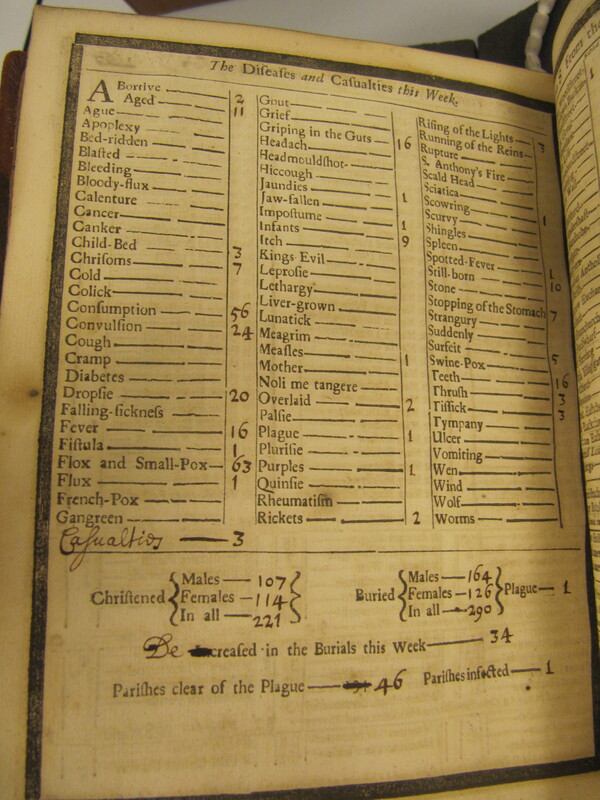 The Diſeaſes and Caſualties this Week.
ABortive — 2
Aged — 11
Ague —
Apoplexy —
Bed-ridden —
Blaſted —
Bleeding —
Bloody-flux —
Calenture —
Cancer —
Canker —
Child-Bed — 3
Chriſoms — 7
Cold —
Colick —
Conſumption — 56
Convulſion — 24
Cough —
Cramp —
Diabetes —
Dropſie — 20
Falling-ſickneſs —
Fever — 16
Fiſtula — 1
Flox and Small-Pox— 63
Flux — 1
French-Pox —
Gangreen —
Caſualties — 3
Gout —
Grief —
Griping in the Guts — 16
Headach —
Headmouldſhot —
Hiccough —
Jaundies — 1
Jaw-fallen —
Impoſtume — 1
Infants — 9
Itch —
Kings Evil —
Leproſie —
Lethargy —
Liver-grown —
Lunatick —
Meagrim —
Meaſles — 1
Mother —
Noli me tangere —
Overlaid — 2
Palſie —
Plague — 1
Pluriſie —
Purples — 1
Quinſie —
Rheumatiſm —
Rickets — 2
Riſing of the Lights — 3
Running of the Reins —
Rupture —
S. Anthony's Fire —
Scald Head —
Sciatica —
Scowring — 1
Scurvy —
Shingles —
Spleen —
Spotted-Fever — 1
Still-born — 10
Stone —
Stopping of the Stomach 7
Strangury —
Suddenly —
Surfeit — 5
Swine-Pox —
Teeth — 16
Thruſh — 3
Tiſſick — 3
Tympany —
Ulcer —
Vomiting —
Wen —
Wind —
Wolf —
Worms —
Chriſtened { Males — 107
Females — 114
In all — 221 }
Buried { Males — 164
Females — 126
In all — 290 } Plague — 1
Decreaſed in the Burials this Week — 34
Pariſhes clear of the Plague — 46 Pariſhes infected — 1